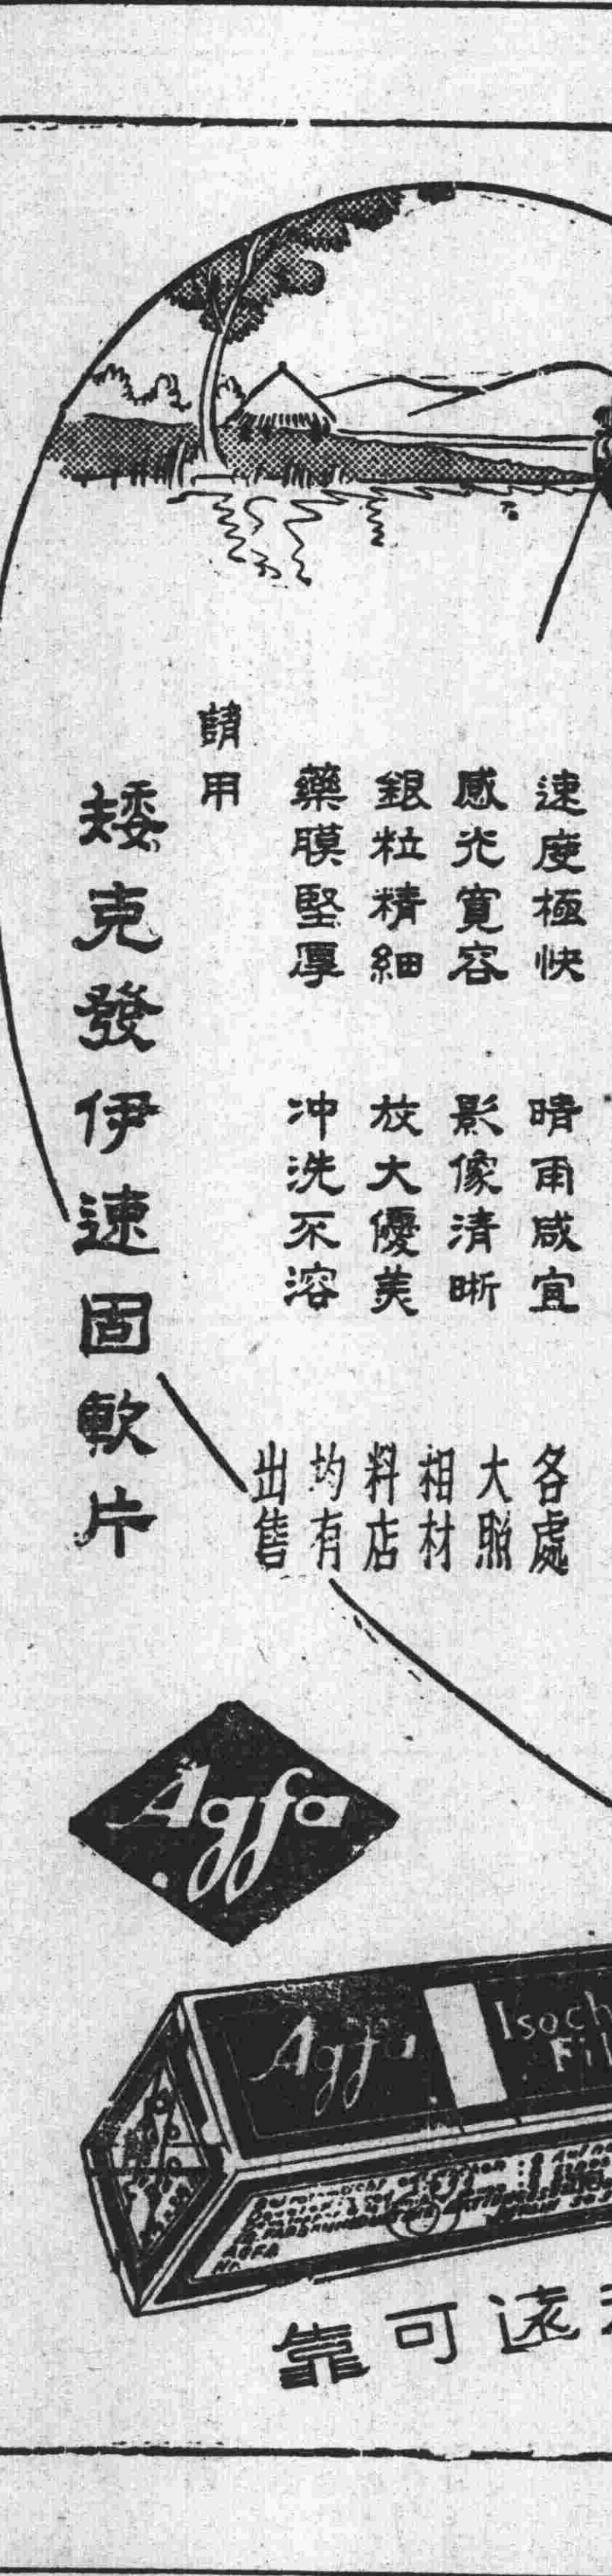 速度極快 晴雨咸宜
感光寬容 影像清晰
銀粒精細 放大優美
藥膜堅厚 冲洗不溶
請用
矮克發伊速固軟片
各處
大照
相材
料店
均有
出售
Agfa
Agfa Isoch
Fil
靠可遠